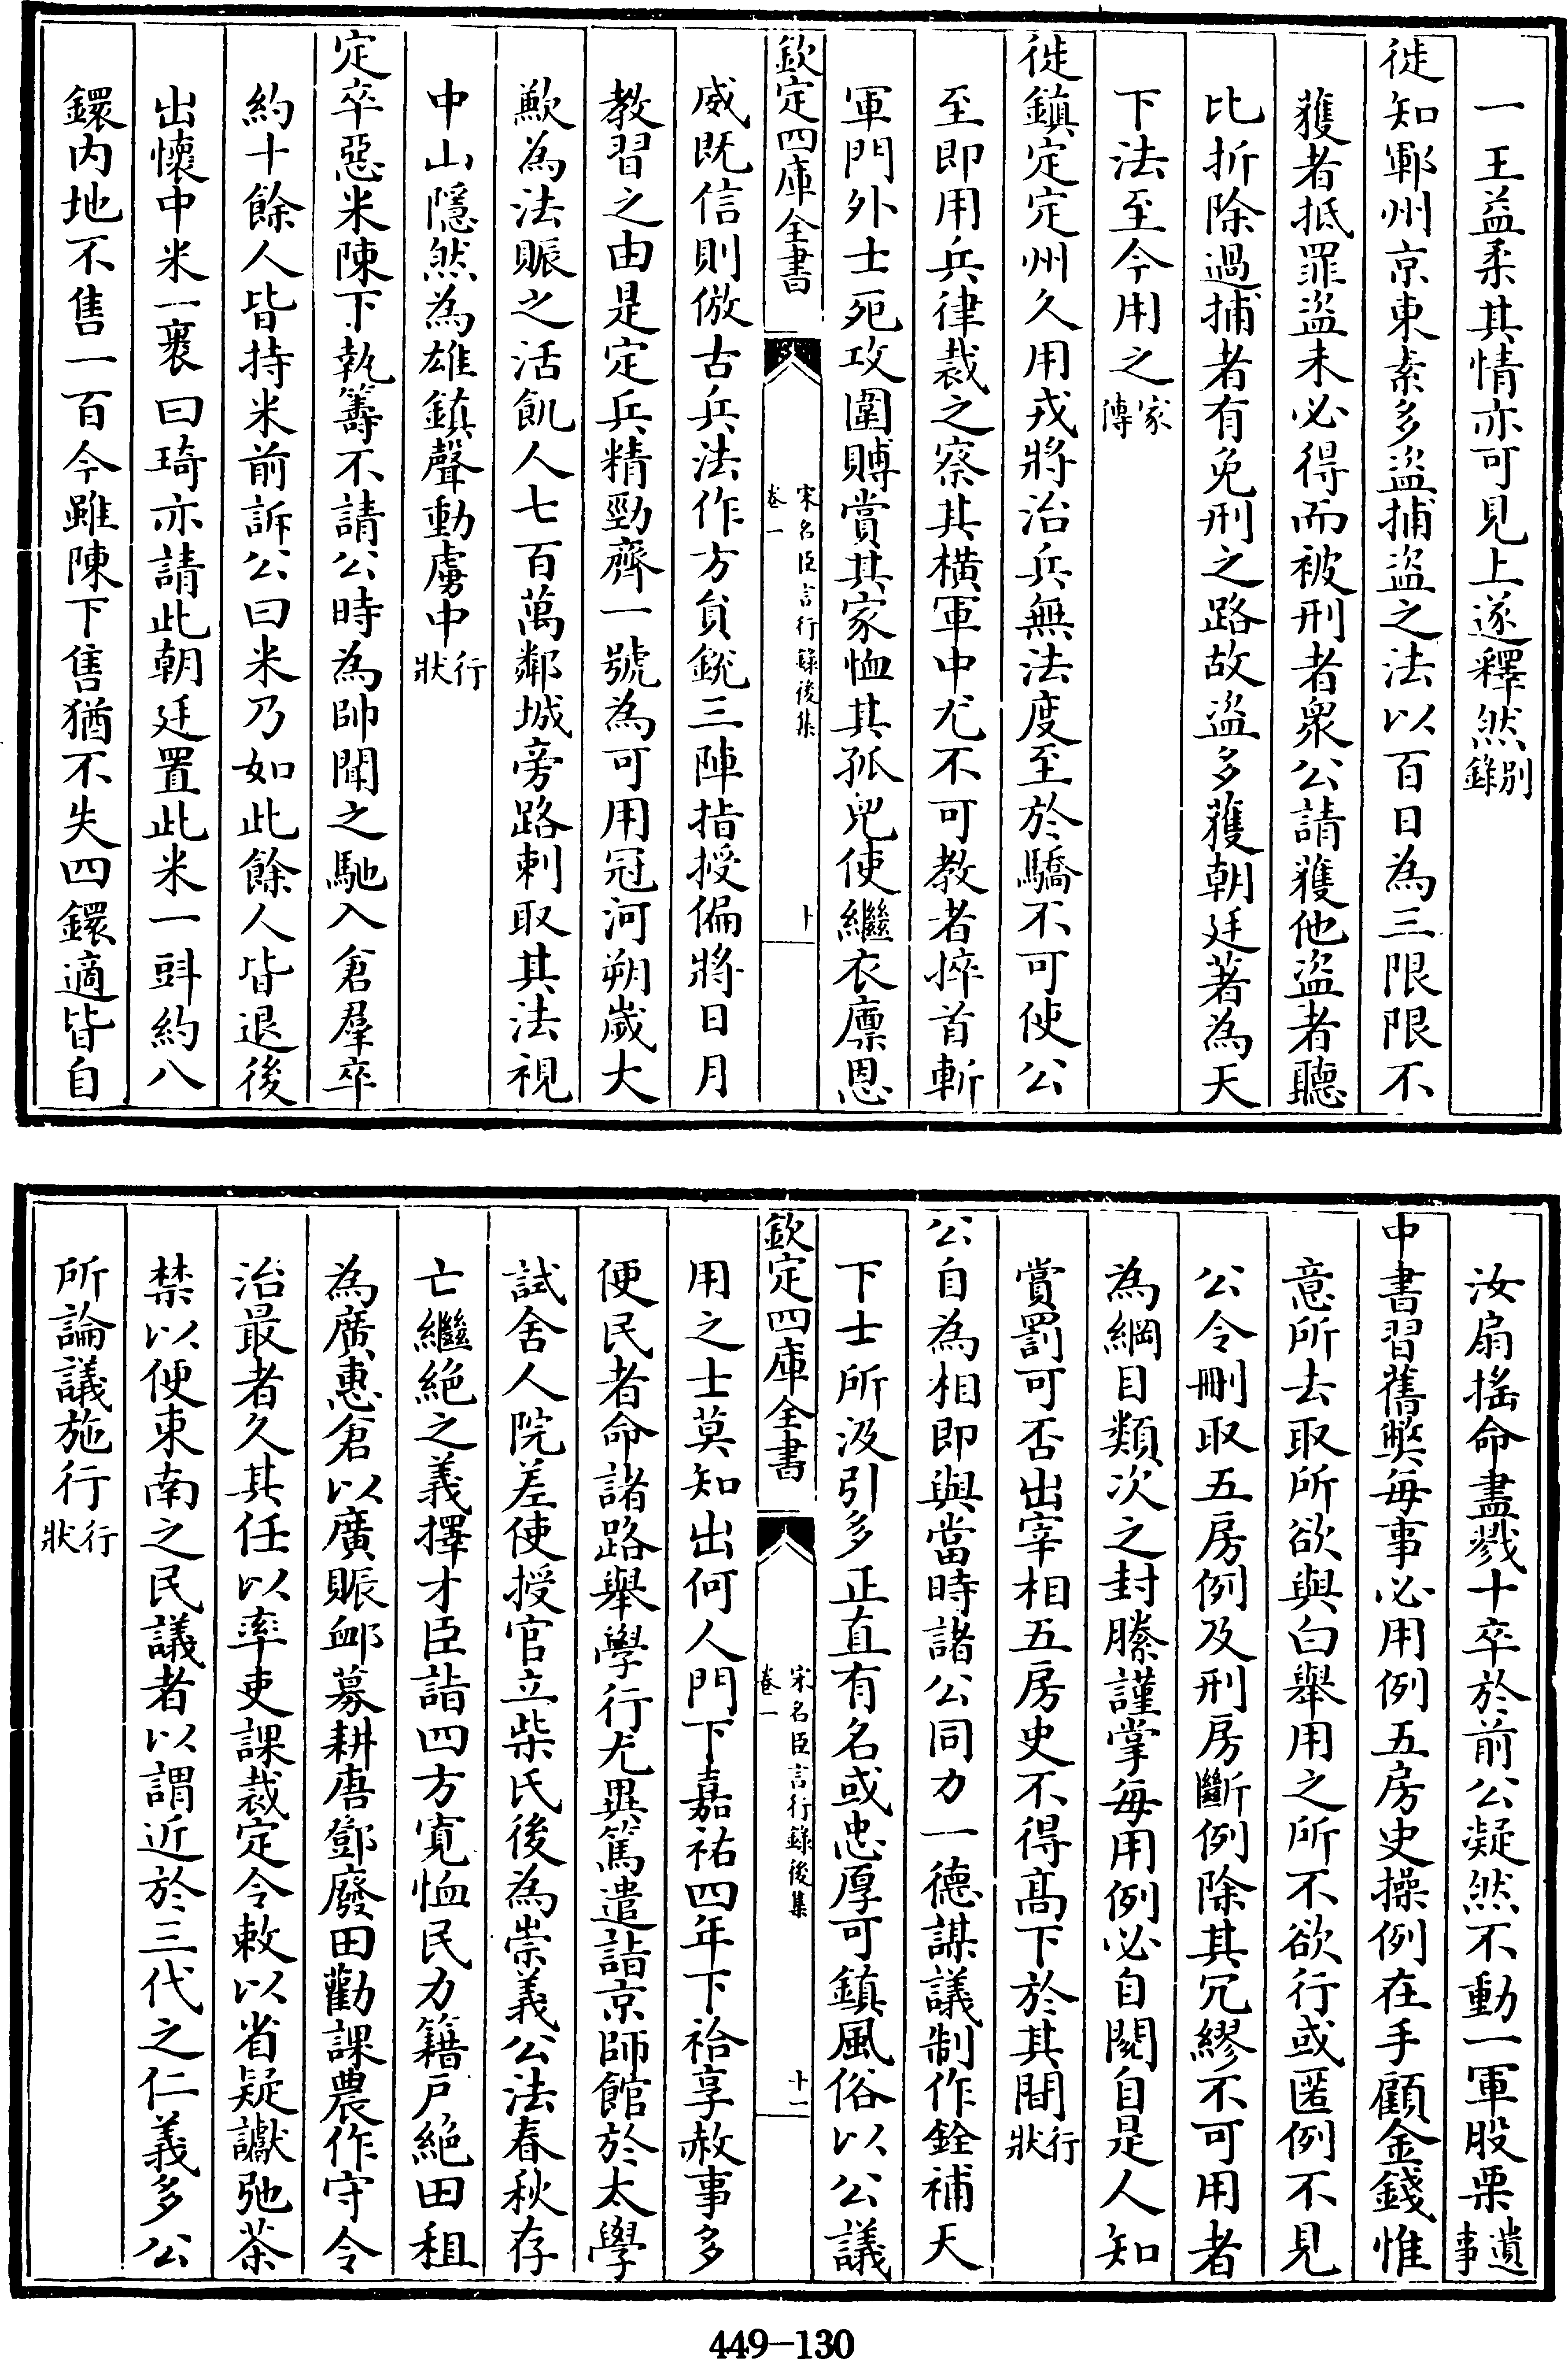 一王益柔其情亦可見上遂釋然别録
徙知鄆州京東素多盗捕盗之法以百日為三限限不
獲者抵罪盗未必得而被刑者衆公請獲他盗者聽
比折除過捕者有免刑之路故盗多獲朝廷著為天
下法至今用之家傳
徙鎮定定州久用戎將治兵無法度至於驕不可使公
至即用兵律裁之察其横軍中尤不可教者捽首斬
軍門外士死攻圍賻賞其家恤其孤兒使繼衣廪恩
欽定四庫全書
宋名臣言行録後集
卷一
十
威既信則倣古兵法作方負銳三陣指授偏將日月
教習之由是定兵精勁齊一號為可用冠河朔歲大
歉為法賑之活飢人七百萬鄰城旁路刺取其法視
中山隱然為雄鎮聲動虜中行狀
定卒惡米陳下執籌不請公時為帥聞之馳入倉羣卒
約十餘人皆持米前訴公曰米乃如此餘人皆退後
出懷中米一裹曰琦亦請此朝廷置此米一㪷約八
鐶内地不售一百今雖陳下售猶不失四鐶適皆自
汝扇摇命盡戮十卒於前公凝然不動一軍股栗遺事
中書習舊弊每事必用例五房史操例在手顧金錢惟
意所去取所欲與白舉用之所不欲行或匿例不見
公令刪取五房例及刑房斷例除其冗繆不可用者
為綱目類次之封縢謹掌每用例必自閱自是人知
賞罰可否出宰相五房史不得髙下於其間行狀
公自為相即與當時諸公同力一德謀議制作銓補天
下士所汲引多正直有名或忠厚可鎮風俗以公議
欽定四庫全書
宋名臣言行録後集
卷一
十一
用之士莫知出何人門下嘉祐四年下祫享赦事多
便民者命諸路舉學行尤異篤遣詣京師館於太學
試舍人院差使授官立柴氏後為崇義公法春秋存
亡繼絶之義擇才臣詣四方寛恤民力籍户絶田租
為廣惠倉以廣賑卹募耕唐鄧廢田勸課農作守令
治最者久其任以率吏課裁定令敕以省疑讞弛茶
禁以便東南之民議者以謂近於三代之仁義多公
所論議施行行狀
449-130